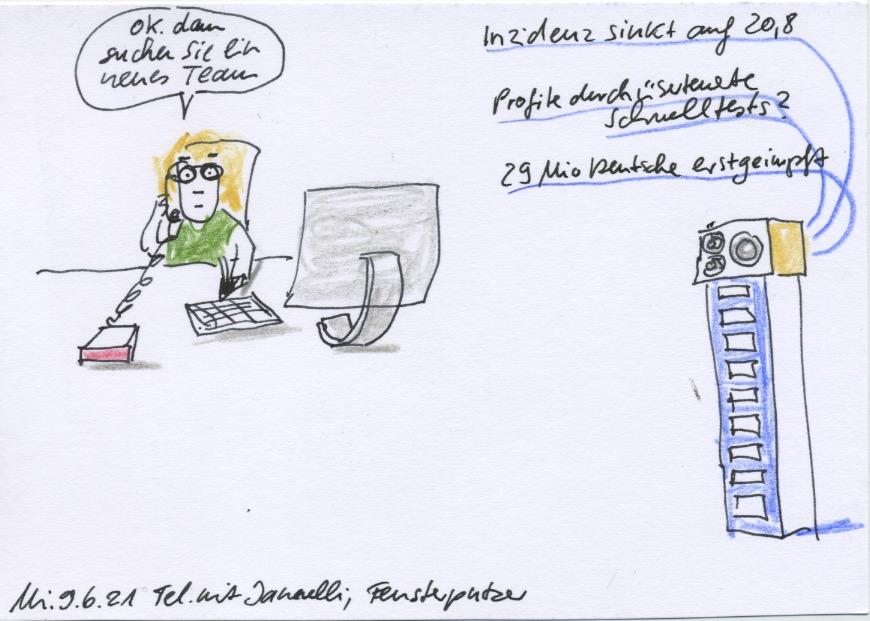 OK. dann
suchen Sie ein
neues Team
Inzidenz sinkt auf 20,8
Profite durch
Schnelltests?
29 Mio Deutsche erstgeimpft
Mi. 9.6.21 Tel. mit Fensterputzer